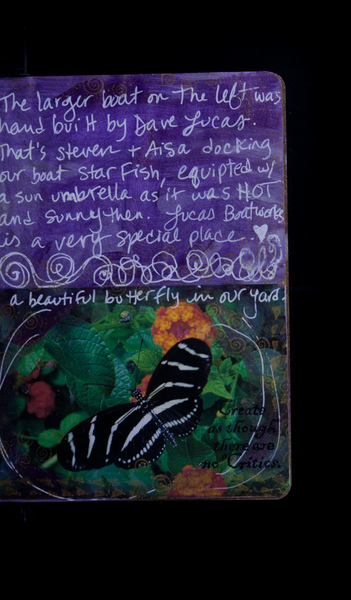 The larger boat on the left was
hand built by Dave Lucas.
That's steven + Aisa docking
our boat Star Fish, equipted w/
a sun umbrella as it was HOT
and sunny then. Lucas Boatworks
is a very special place..
a beautiful butterfly in our yard.
Create
as though
there are
no Critics.